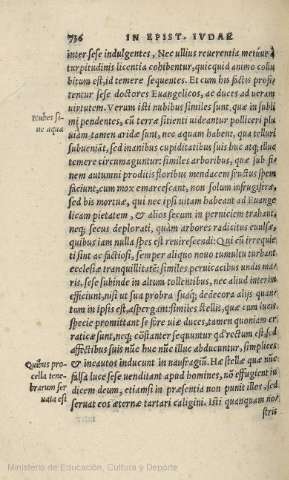 736 IN EPIST. IVDAE
inter sese indulgentes. Nec ullius reuerentia metúue à
turpitudinis licentia cohibentur, quicquid animo collu
bitum est, id temere sequentes. Et cum his factis profi
tentur sese doctores Euangelicos, ac duces ad ueram
uirtutem. Verum isti nubibus similes sunt, quæ in subli
mi pendentes, cùm terræ sitienti uideantur polliceri plu
uiam, tamen aridæ sunt, nec aquam habent, qua telluri
subueniāt, sed inanibus cupiditatibus suis huc atq; illuc
temere circumaguntur: similes arboribus, quæ sub fi-
nem autumni proditis floribus mendacem fructus spem
faciunt, cum mox emarcescant, non solum infrugiferæ,
sed bis mortuæ, qui nec ipsi uitam habeant ad Euange
licam pietatem, & alios secum in perniciem trahant,
neq; secus deplorati, quàm arbores radicitus euulsæ,
quibus iam nulla spes est reuirescendi: Qui cū irrequie
ti sint ac factiosi, semper aliquo nouo tumultu turbant
ecclesiæ tranquillitatē: similes peruicacibus undis ma-
ris, sese subinde in altum tollentibus, nec aliud interim
efficiunt, nisi ut sua probra suaq; dedecora alijs quan
tum in ipsis est, aspergant: similes stellis, quæ cum sua
specie promittant se fore uiæ duces, tamen quoniam er
raticæ sunt, neq; cōstanter sequuntur qd rectum est, sed
affectibus suis nūc huc nūc illuc abducuntur, simplices
& incautos inducunt in naufragiū. Hæ stellæ quæ nūc
falsa luce sese uenditant apud homines, nō effugient iu
dicem deum, etiamsi in præsentia non punit illos, sed
seruat eos æternæ tartari caligini. Isti quanquam no
stris
nubes si-
ne aqua
Quibus pro-
cella tene-
brarum ser
uata est
Ministerio de Educación, Cultura y Deporte